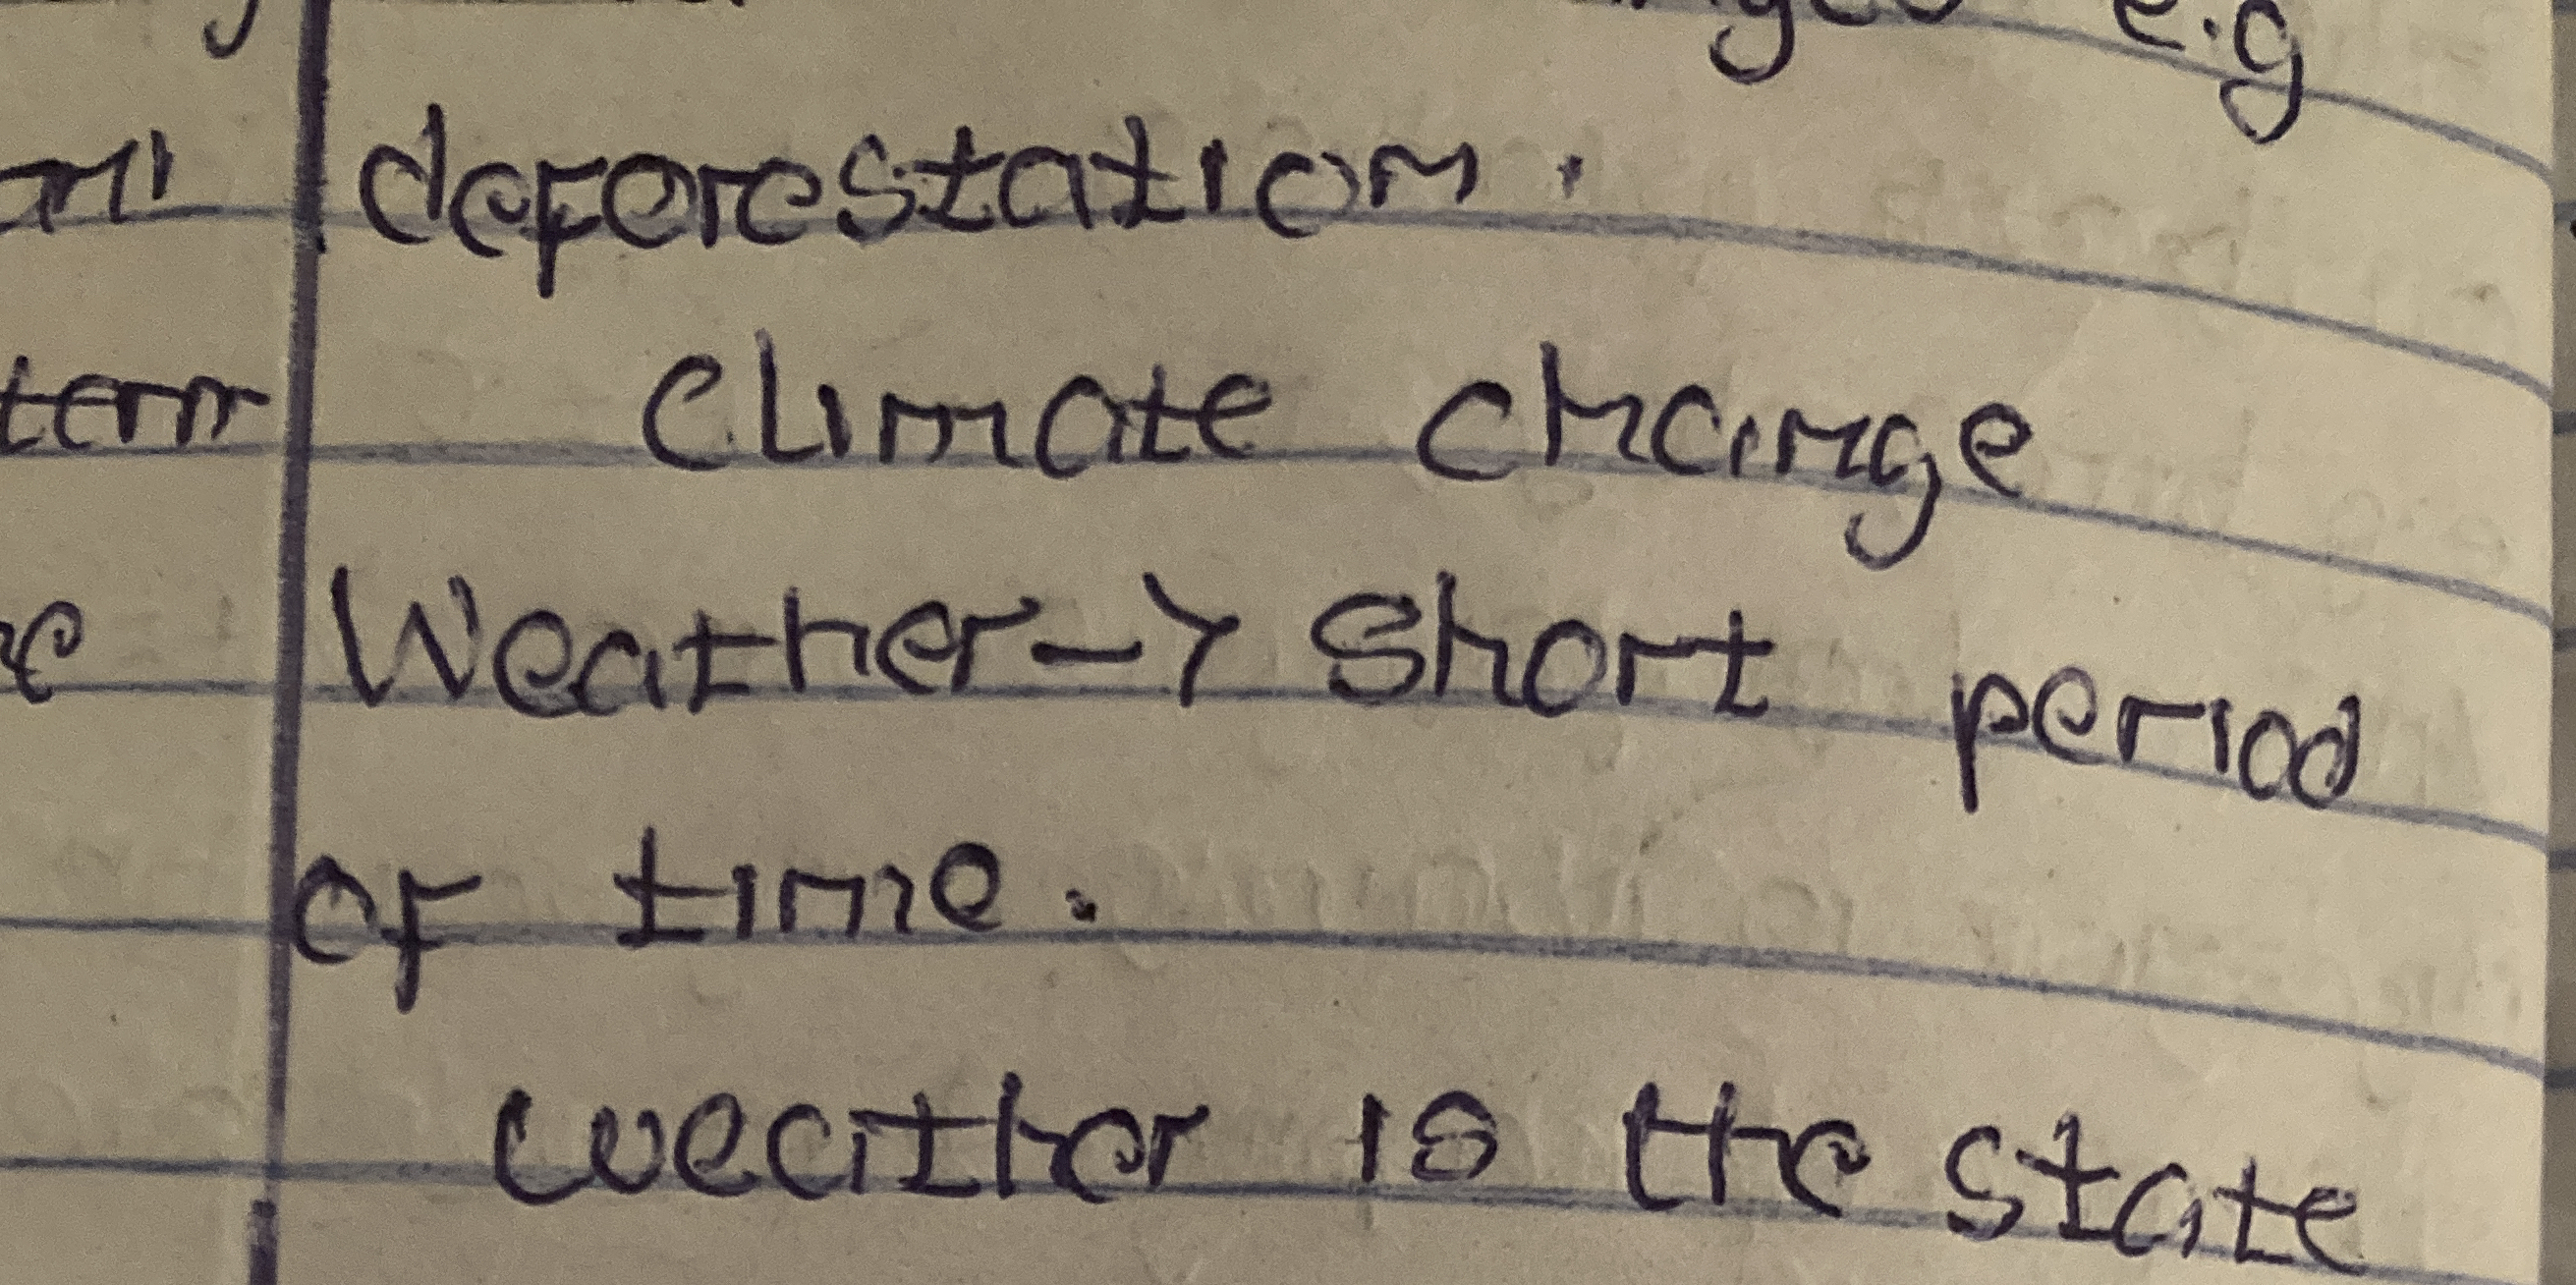 e.g
deferestation.
term
Climate change
Weather -> Short period
of time.
weather is the state